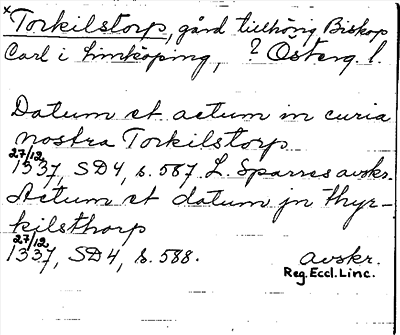 ×Torkilstorp, gård tillhörig Biskop
Carl i Linnköping, ? Österg. l.
Datum et actum in curia
nostra Torkilstorp
27/12
1337, SD4, s. 587. L. Sparres avskr.
Actum et datum jn thyr-
kilsthorp
27/12
1337, SD4, s. 588. avskr.
Reg. Eccl. Linc.